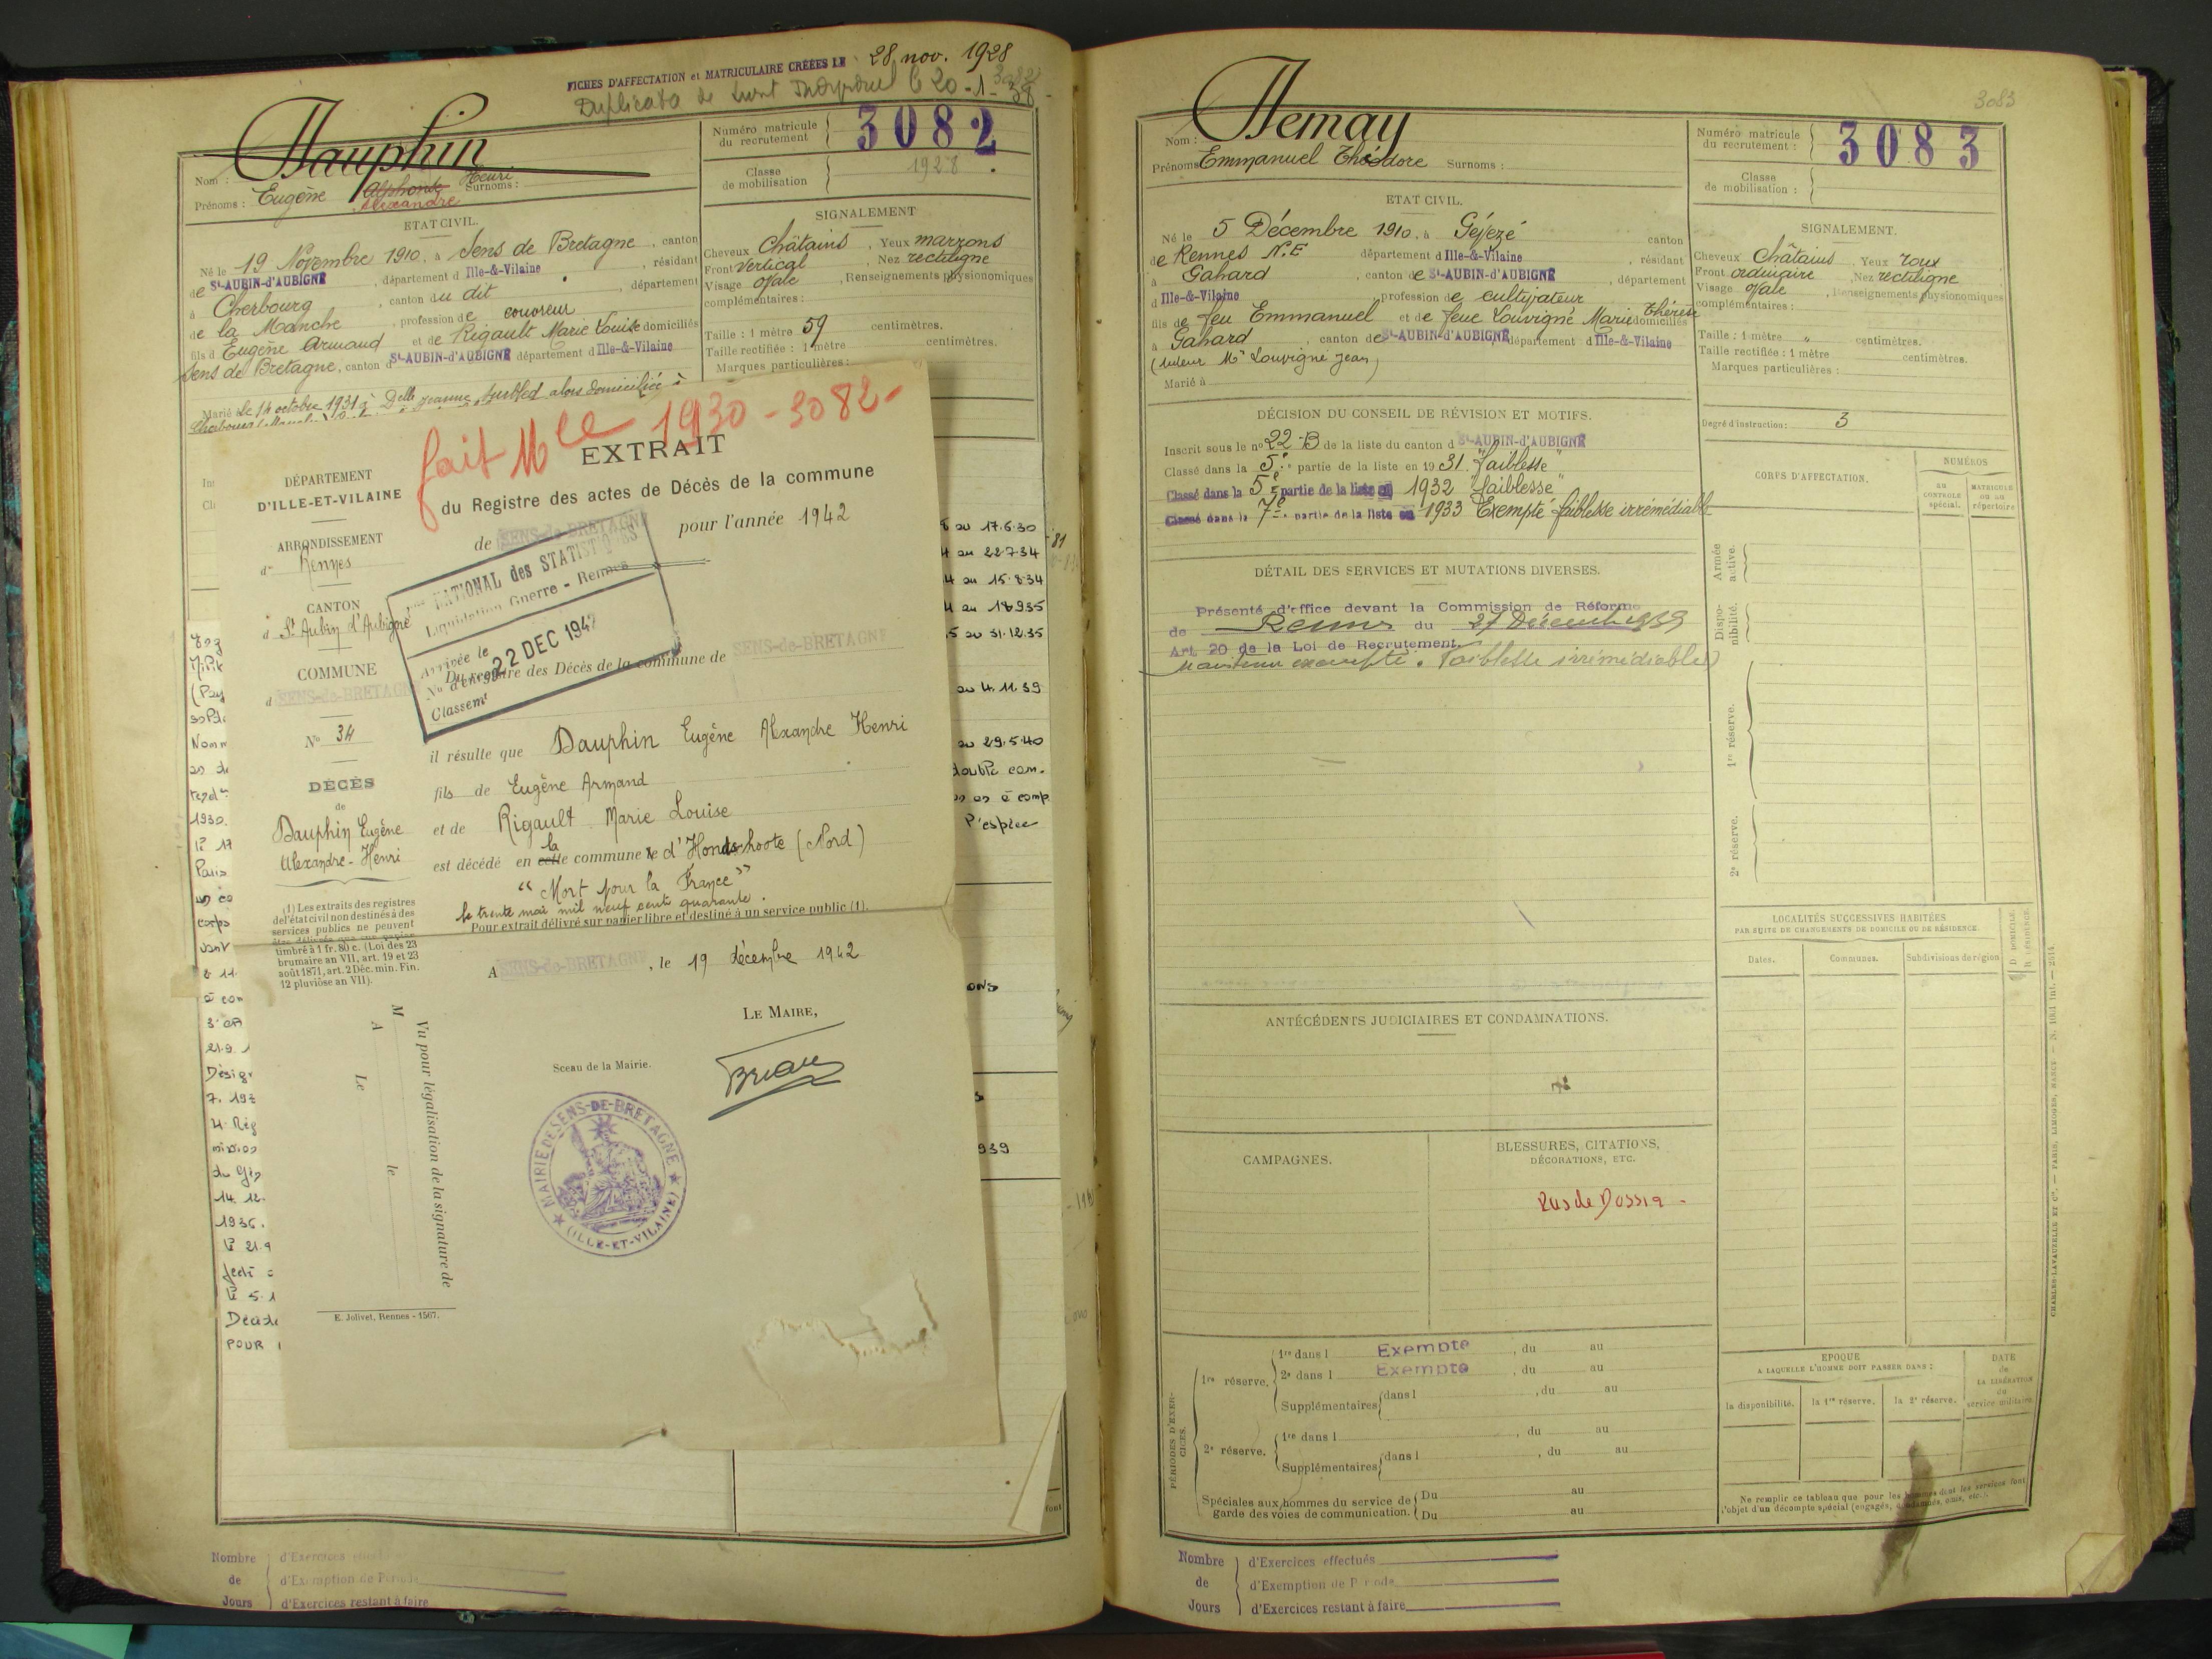 FICHES D'AFFECTATION et MATRICULAIRE CRÉÉES LE 28 nov. 1928
Duplicata de 20-1-38
3082
Nom : Dauphin
Prénoms : Eugène Alphonse Alexandre Henri Surnoms :
Numéro matricule du recrutement 3082
Classe de mobilisation 1928
ETAT CIVIL.
Né le 19 Novembre 1910, à Sens de Bretagne, canton
de St-AUBIN-d'AUBIGNÉ, département d Ille-&-Vilaine, résidant
à Cherbourg, canton du dit, département
de la Manche, profession de couvreur
fils d Eugène Armand et de Rigault Marie Louise domiciliés
Sens de Bretagne, canton d St-AUBIN-d'AUBIGNÉ département d Ille-&-Vilaine
Marié le 14 octobre 1931 à Delle Jeanne alors domiciliée à
SIGNALEMENT
Cheveux Châtains, Yeux marrons
Front Vertical, Nez rectiligne
Visage ovale, Renseignements physionomiques
complémentaires :
Taille : 1 mètre 59 centimètres.
Taille rectifiée : 1 mètre centimètres.
Marques particulières :
fait Mle 1930-3082-
EXTRAIT
du Registre des actes de Décès de la commune
de SENS-de-BRETAGNE pour l'année 1942
DÉPARTEMENT
D'ILLE-ET-VILAINE
ARRONDISSEMENT
de Rennes
CANTON
d St Aubin d'Aubigné
COMMUNE
d SENS-de-BRETAGNE
No 34
DÉCÈS
de
Dauphin Eugène
Alexandre-Henri
NATIONAL des STATISTIQUES
Liquidation Guerre - Rennes
Arrivée le 22 DEC 1942
No d'enreg
Classemt
Du registre des Décès de la commune de SENS-de-BRETAGNE
il résulte que Dauphin Eugène Alexandre Henri
fils de Eugène Armand
et de Rigault Marie Louise
est décédé en cette la commune de d'Hondschoote (Nord)
"Mort pour la France"
le trente mai mil neuf cent quarante.
Pour extrait délivré sur papier libre et destiné à un service public (1).
(1) Les extraits des registres
de l'état civil non destinés à des
services publics ne peuvent
être délivrés que sur papier
timbré à 1 fr. 80 c. (Loi des 23
brumaire an VII, art. 19 et 23
août 1871, art. 2 Déc. min. Fin.
12 pluviôse an VII).
A SENS-de-BRETAGNE, le 19 décembre 1942
LE MAIRE,
Sceau de la Mairie.
MAIRIE DE SENS-DE-BRETAGNE
(ILLE-ET-VILAINE)
Vu pour légalisation de la signature de
M
A le
Le
E. Jolivet, Rennes - 1567.
au 17.6.30
au 22.7.34
au 15.8.34
au 18.9.35
au 31.12.35
au 4.11.39
au 29.5.40
double cam.
1930.
Paris
corps
21.9
Désign
14.12.
1936.
POUR
939
Nombre de Jours
d'Exercices effectués
d'Exemption de Période
d'Exercices restant à faire
3083
Nom : Hemay
Prénoms Emmanuel Théodore Surnoms :
Numéro matricule du recrutement : 3083
Classe de mobilisation :
ETAT CIVIL.
Né le 5 Décembre 1910, à Gévezé canton
de Rennes N.E département d Ille-&-Vilaine, résidant
à Gahard, canton de St-AUBIN-d'AUBIGNÉ, département
d Ille-&-Vilaine, profession de cultivateur
fils de feu Emmanuel et de feue Louvigné Marie Thérèse domiciliés
à Gahard, canton de St-AUBIN-d'AUBIGNÉ, département d Ille-&-Vilaine
(tuteur Mr Louvigné Jean)
Marié à
SIGNALEMENT.
Cheveux Châtains, Yeux roux
Front ordinaire, Nez rectiligne
Visage ovale, Renseignements physionomiques
complémentaires :
Taille : 1 mètre " centimètres.
Taille rectifiée : 1 mètre centimètres.
Marques particulières :
Degré d'instruction : 3
DÉCISION DU CONSEIL DE RÉVISION ET MOTIFS.
Inscrit sous le no 22 B de la liste du canton d St-AUBIN-d'AUBIGNÉ
Classé dans la 5e partie de la liste en 1931. "faiblesse"
Classé dans la 5e partie de la liste en 1932 "faiblesse"
Classé dans la 7e partie de la liste en 1933 Exempté faiblesse irrémédiable
CORPS D'AFFECTATION.
NUMÉROS
AU CONTROLE spécial.
MATRICULE OU AU répertoire
DÉTAIL DES SERVICES ET MUTATIONS DIVERSES.
Présenté d'office devant la Commission de Réforme
de Rennes du 27 Décembre 1939
Art. 20 de la Loi de Recrutement
Maintenu exempté. Faiblesse irrémédiable
Armée active.
Disponibilité.
1re réserve.
2e réserve.
LOCALITÉS SUCCESSIVES HABITÉES
PAR SUITE DE CHANGEMENTS DE DOMICILE OU DE RÉSIDENCE.
Dates.
Communes.
Subdivisions de région
D. DOMICILE.
R. RÉSIDENCE.
ANTÉCÉDENTS JUDICIAIRES ET CONDAMNATIONS.
CAMPAGNES.
BLESSURES, CITATIONS,
DÉCORATIONS, ETC.
Pas de Dossier -
PÉRIODES D'EXERCICES.
1re réserve.
1re dans l Exempté, du au
2e dans l Exempté, du au
Supplémentaires dans l, du au
2e réserve.
1re dans l, du au
Supplémentaires dans l, du au
Spéciales aux hommes du service de garde des voies de communication.
Du au
Du au
EPOQUE
A LAQUELLE L'HOMME DOIT PASSER DANS :
la disponibilité.
la 1re réserve.
la 2e réserve.
DATE
de
LA LIBÉRATION
du
service militaire.
Ne remplir ce tableau que pour les hommes dont les services font
l'objet d'un décompte spécial (engagés, condamnés, omis, etc.).
CHARLES-LAVAUZELLE ET Cie. — PARIS, LIMOGES, NANCY
Nombre de Jours
d'Exercices effectués
d'Exemption de Période
d'Exercices restant à faire